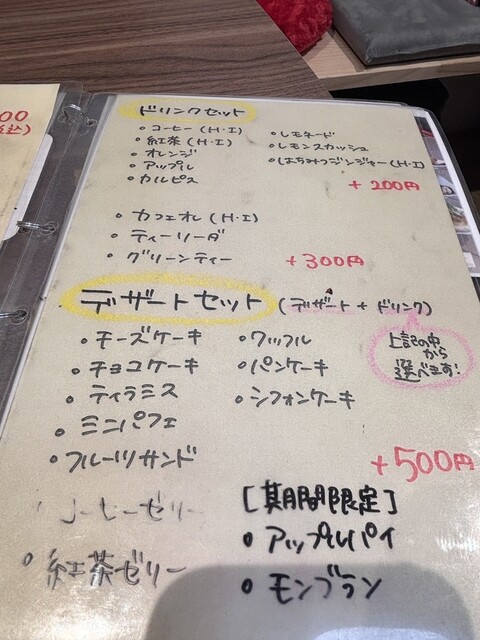 00
込)
ドリンクセット
・コーヒー(H・I)
・紅茶(H・I)
・オレンジ
・アップル
・カルピス
・レモネード
・レモンスカッシュ
・はちみつジンジャー(H・I)
+200円
・カフェオレ(H・I)
・ティーソーダ
・グリーンティー
+300円
デザートセット(デザート+ドリンク)
上記の中
から
選べます!
・チーズケーキ
・チョコケーキ
・ティラミス
・ミニパフェ
・フルーツサンド
・ワッフル
・パンケーキ
・シフォンケーキ
+500円
コーヒーゼリー
・紅茶ゼリー
[期間限定]
・アップルパイ
・モンブラン